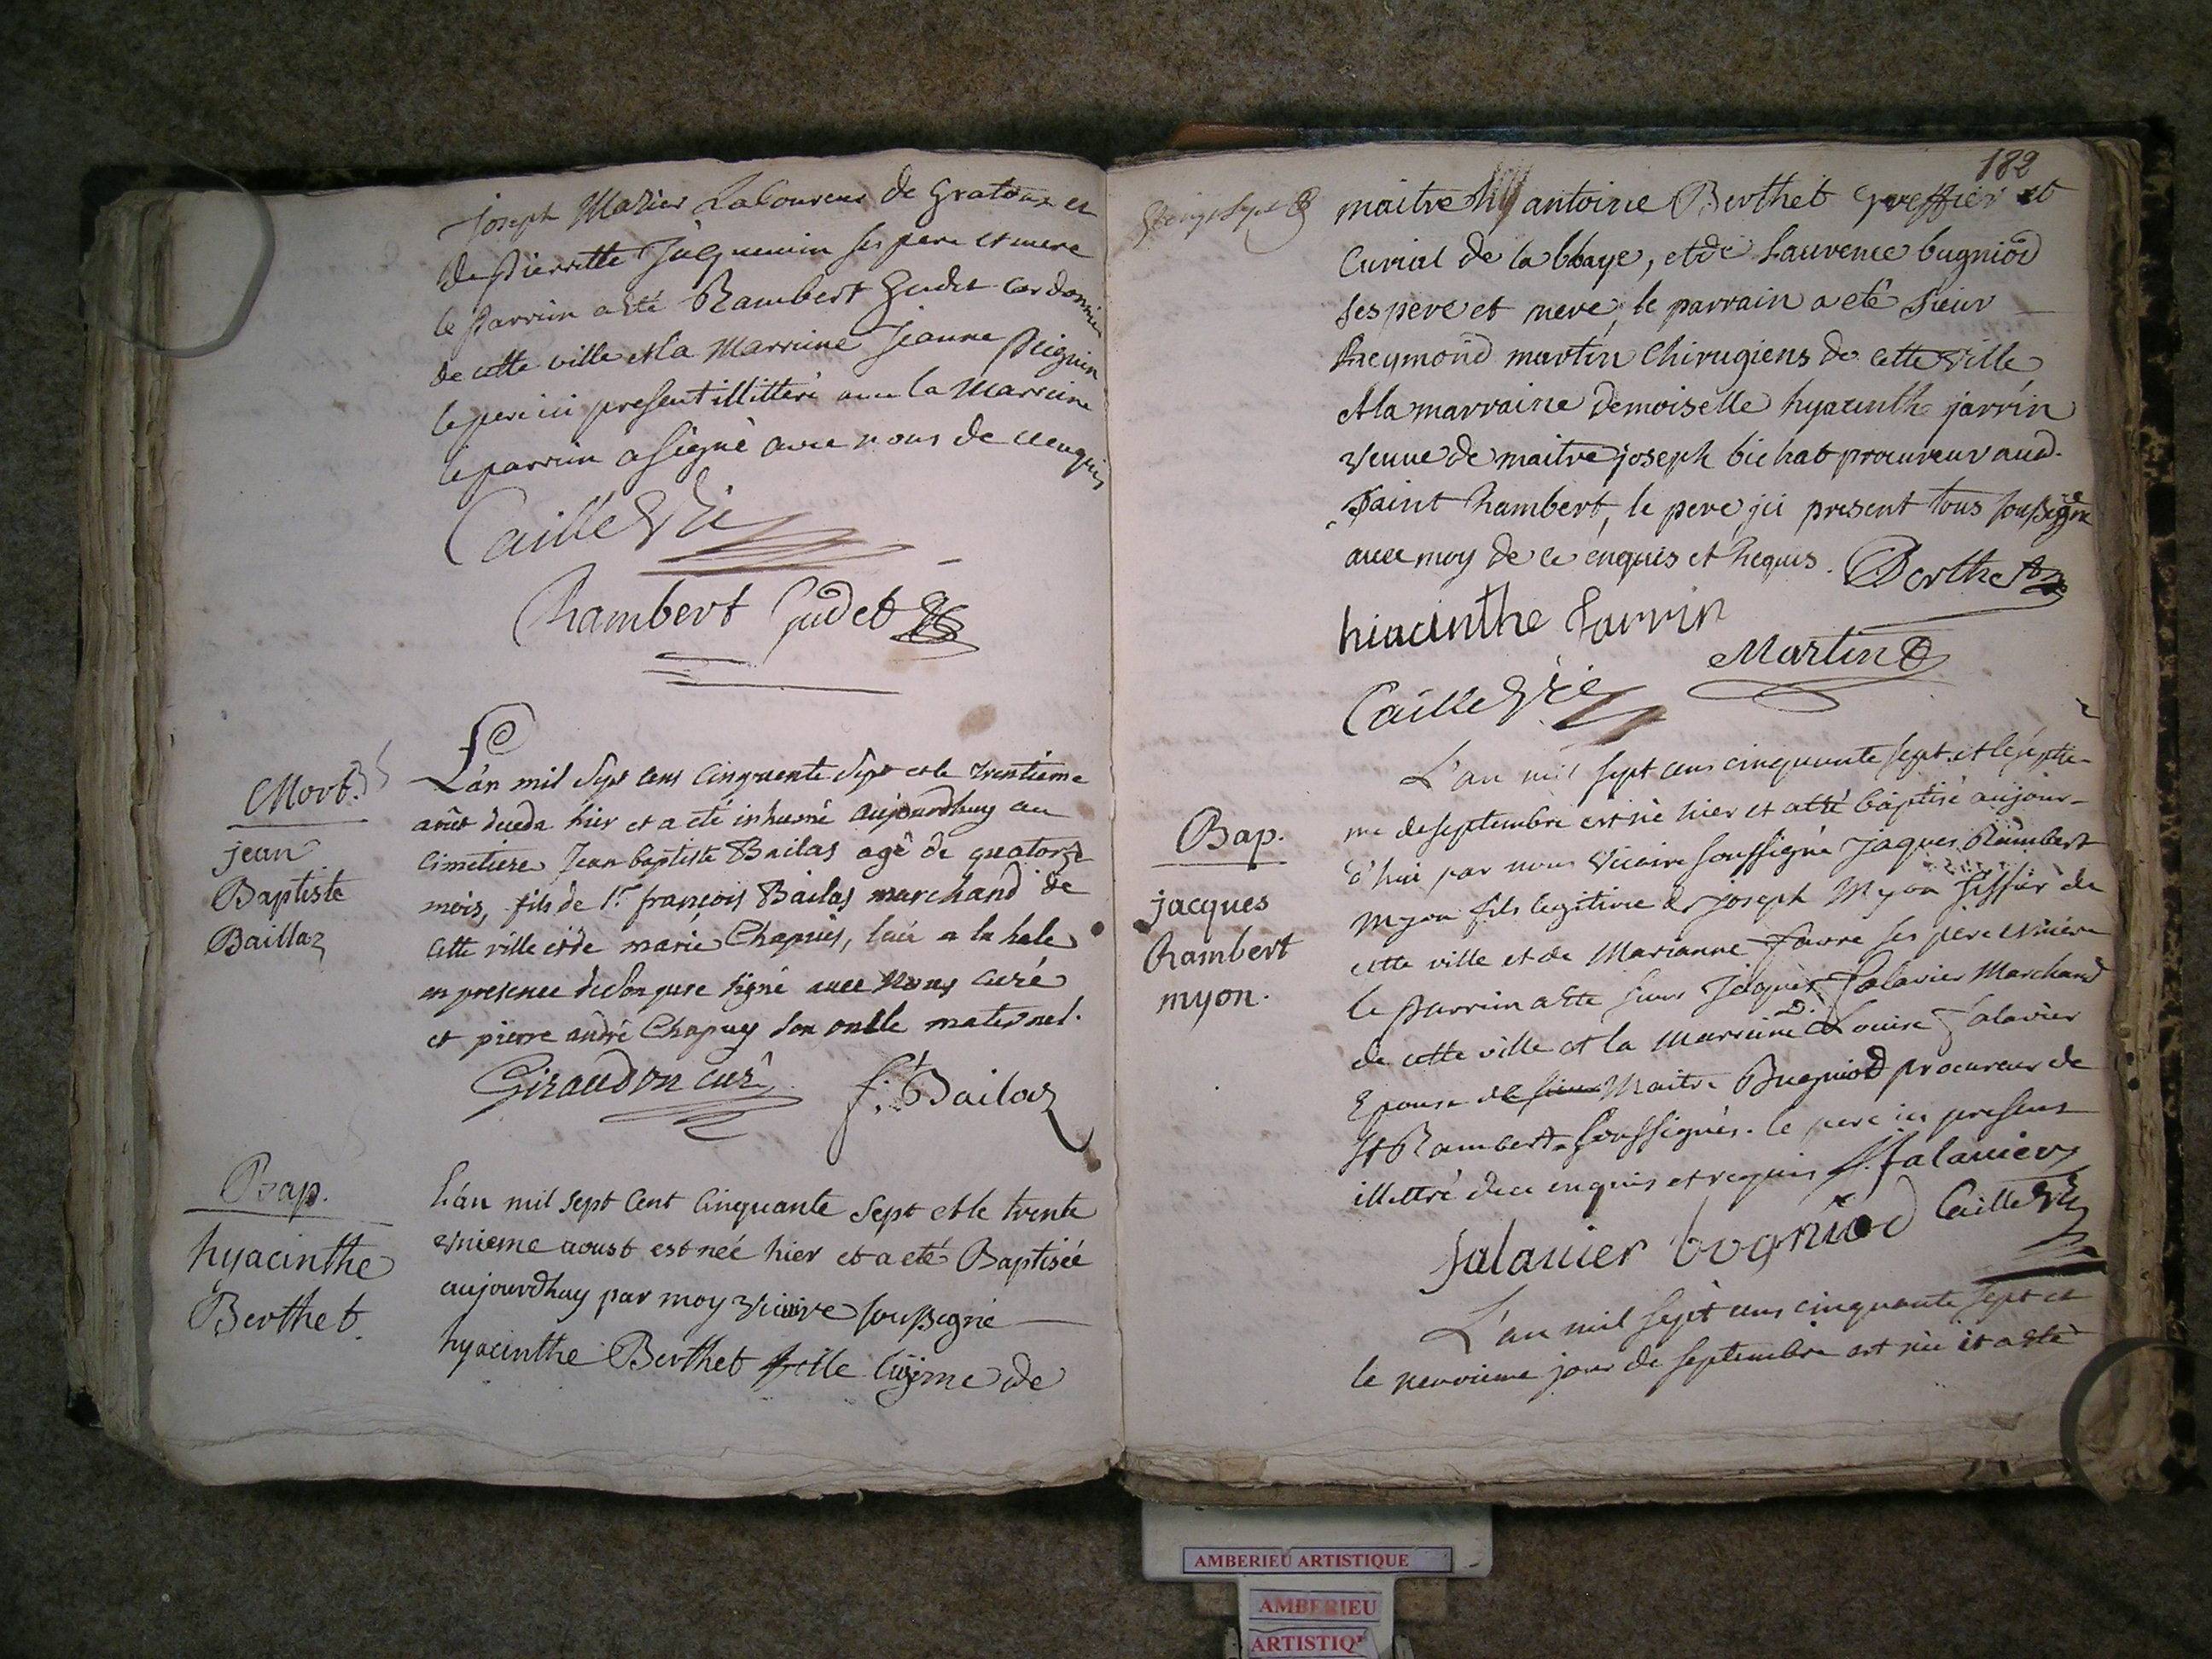 joseph Mazier Laboureur de Gratoux et
de Pierrette Juguemin ses pere et mere
le parrein a été Rambert Gudet Cordonnier
de cette ville et la Marreine Jeanne
le pere ici present illitteré avec la Marreine
le parrein a signé avec nous de ce enquis
Caille Vic
Rambert Gudet
Mort.
jean
Baptiste
Baillaz
L'an mil Sept Cens Cinquante Sept et le trentieme
août deceda hier et a eté inhumé aujourdhuy au
Cimetiere Jean baptiste Bailas agé de quatorze
mois, fils de Sr. françois Bailas marchand de
cette ville et de marie Chapuis, a la hale
en presence de son pere signé avec Nous Curé
et pierre andré Chapuy son oncle maternel.
Giraudon curé
f. Bailaz
Bap.
hyacinthe
Berthet.
L'an mil sept Cent Cinquante Sept et le trente
unieme aoust est née hier et a eté Baptisée
aujourdhuy par moy vicaire soussigné
hyacinthe Berthet fille de
182
maitre antoine Berthet greffier et
Curial de labbaye, et de Laurence bugniod
ses pere et mere, le parrain a eté sieur
Reymond martin Chirugiens de cette ville
et la marraine demoiselle hyacinthe jarrin
veuve de maitre joseph bichat procureur aud.
Saint Rambert, le pere jci present tous soussigné
avec moy de ce enquis et Requis. Berthet
hiacinthe Jarrin
Martin
Caille Vic
Bap.
jacques
Rambert
myon.
L'an mil sept cens cinquante sept et le septie-
me de septembre est né hier et a été baptisé aujour-
d'hui par nous Vicaire soussigné Jaques Rambert
Myon fils legitime de joseph Myon tissier de
cette ville et de Marianne favre ses pere et mere
le parrein a été sieur Jaques falavier Marchand
de cette ville et la Marreine D. Louise falavier
Epouse de sieur Maitre Bugniod procureur de
St Rambert soussignés. le pere ici present
illettré de ce enquis et requis J. falavier
falavier bogniod Caille Vic
L'an mil sept cens cinquante sept et
le neuvieme jour de septembre est née et a été
AMBERIEU ARTISTIQUE
AMBERIEU
ARTISTIQ